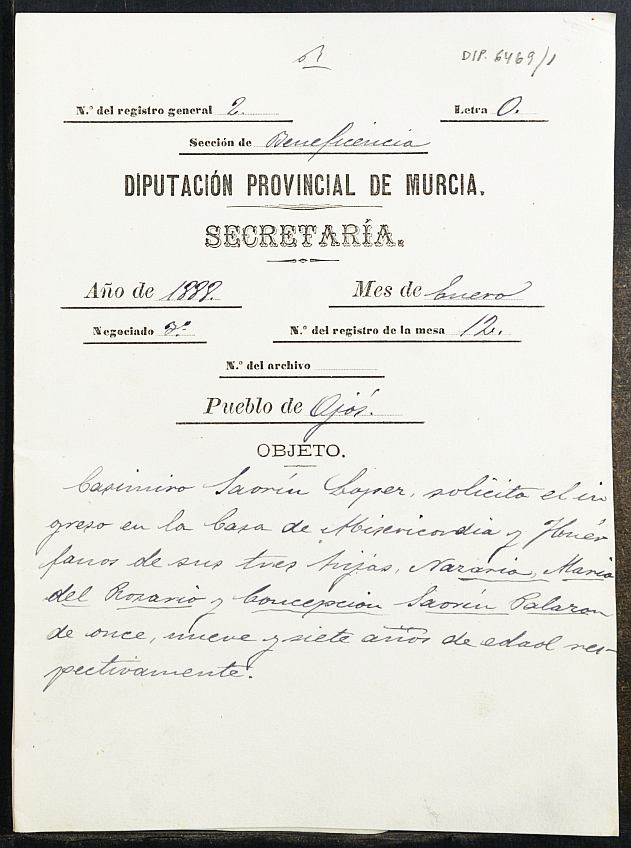 DIP. 6469/1
N.º del registro general 2. Letra O.
Sección de Beneficencia
DIPUTACIÓN PROVINCIAL DE MURCIA.
SECRETARÍA.
Año de 1889. Mes de Enero
Negociado 2º N.º del registro de la mesa 12.
N.º del archivo
Pueblo de Ojós.
OBJETO.
Casimiro Saorín López, solicita el in
greso en la Casa de Misericordia y Huér
fanos de sus tres hijas, Nazaria, María
del Rosario y Concepcion Saorín Palazon
de once, nueve y siete años de edad res-
pectivamente.